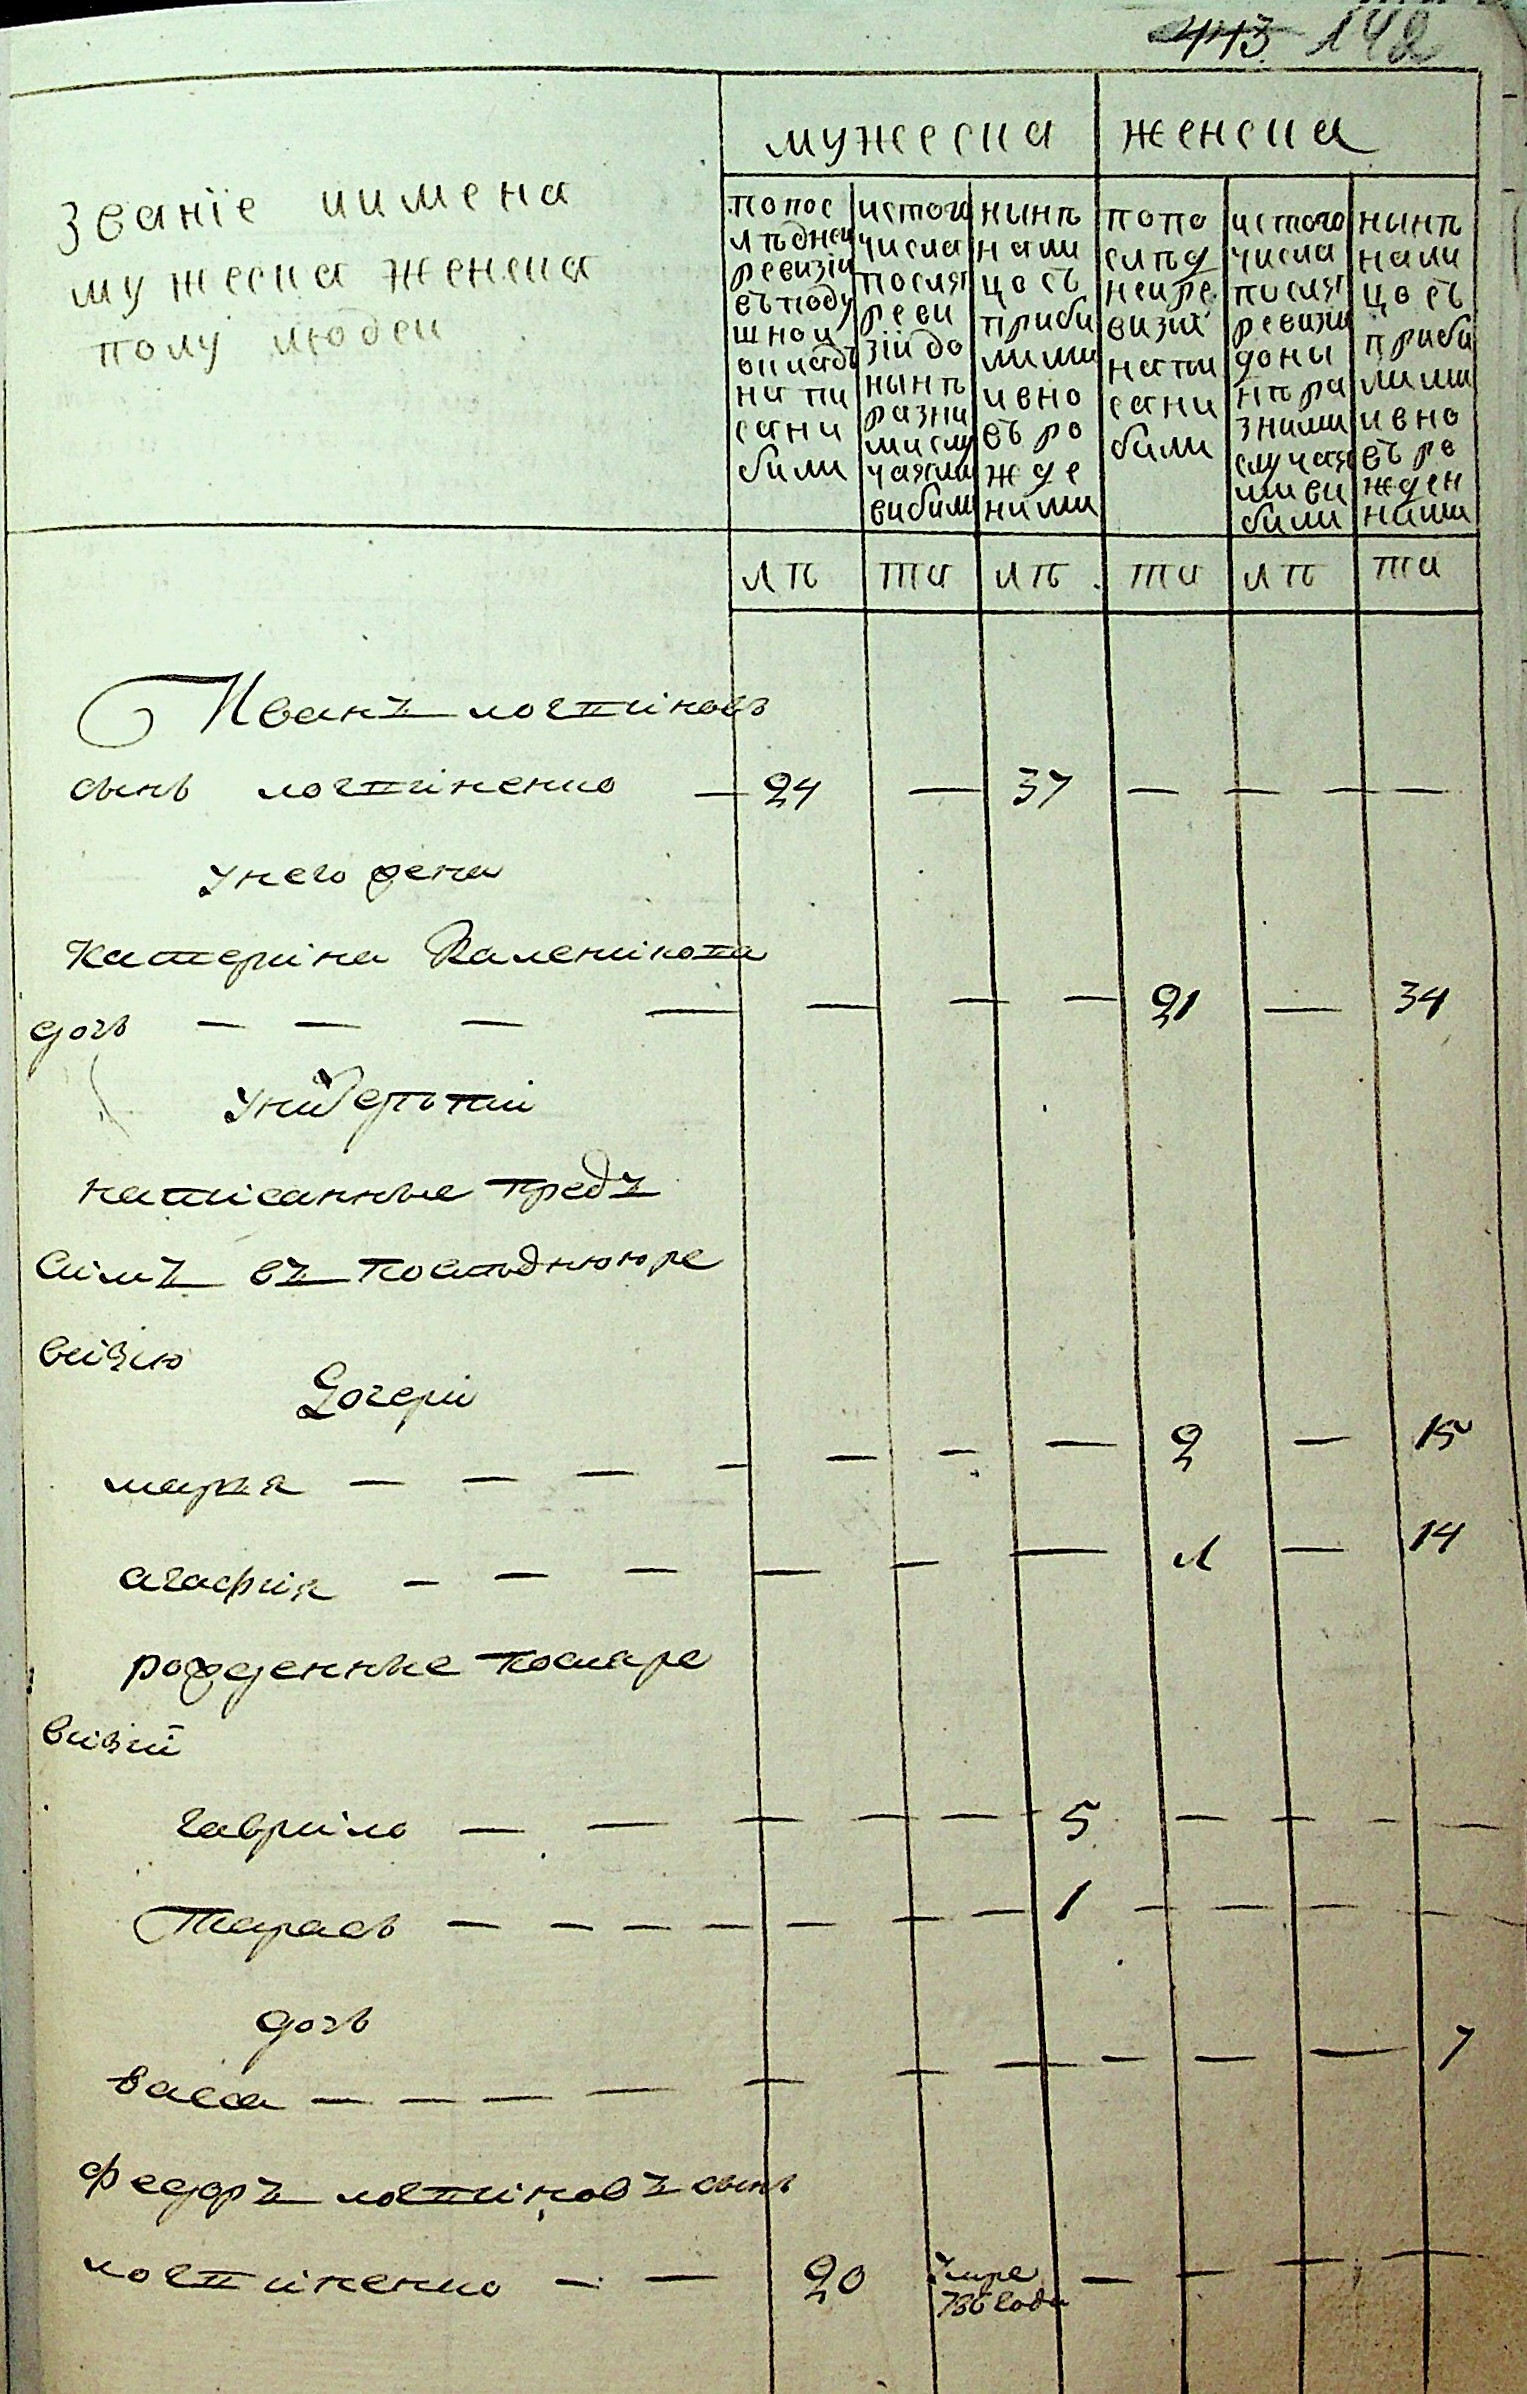 443 142
мужеска женска
званіе иимена
мужеска женска
полу людеи
попос
лѣднеи
ревизіи
въподу
шнои
окладъ
напи
сани
били
истого
числа
послѣ
реви
зіи до
нынѣ
разни
мислу
чаями
вибили
нынѣ
нали
цо съ
приби
лими
ивно
въ ро
жде
ними
попо
слѣд
неире
визіи
напи
сани
били
истого
числа
послѣ
ревизіи
дони
нѣ ра
зними
случая
ми ви
били
нынѣ
нали
цо съ
приби
лими
ивно
въ ро
жден
ними
лѣ та лѣ та лѣ та
Иванъ логвиновъ
сынъ логвиненко — 24 — 37 — — — —
унего жена
катерина Каленикова
дочь — — — — — — — 21 — 34
унихъ дѣти
написанные предъ
симъ въ послѣднююре
визію
Дочери
марья — — — — — — — 2 — 15
агафия — — — — — — 1 — 14
рожденные послѣре
визіи
гаврило — — — — — 5 — — — —
Тарасъ — — — — — — — 1 — — — — —
дочь
васса — — — — — — — — — — 7
федоръ логвиновъ сынъ
логвиненко — — 20 умре — — — —
786 года